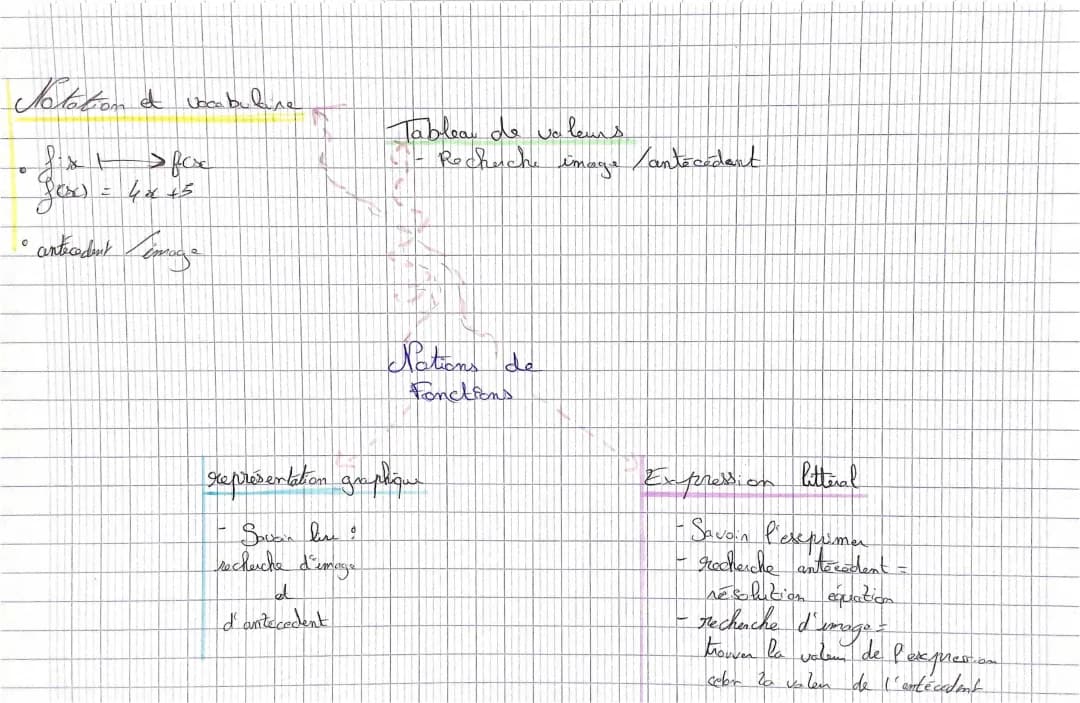 Notation et vocabulaire
• f: x ⟼ f(x
f(x) = 4x +5
• antécedent /image
Tableau de valeurs
- Recherche image /antécédent
Notions de
Fonctions
représentation graphique
- Savoir lire :
recherche d'image
et
d'antécedent
Expression littéral
- Savoir l'exprimer
- recherche antécédent =
résolution équation
- recherche d'image =
trouver la valeur de l'expression
la valeur de l'antécédent